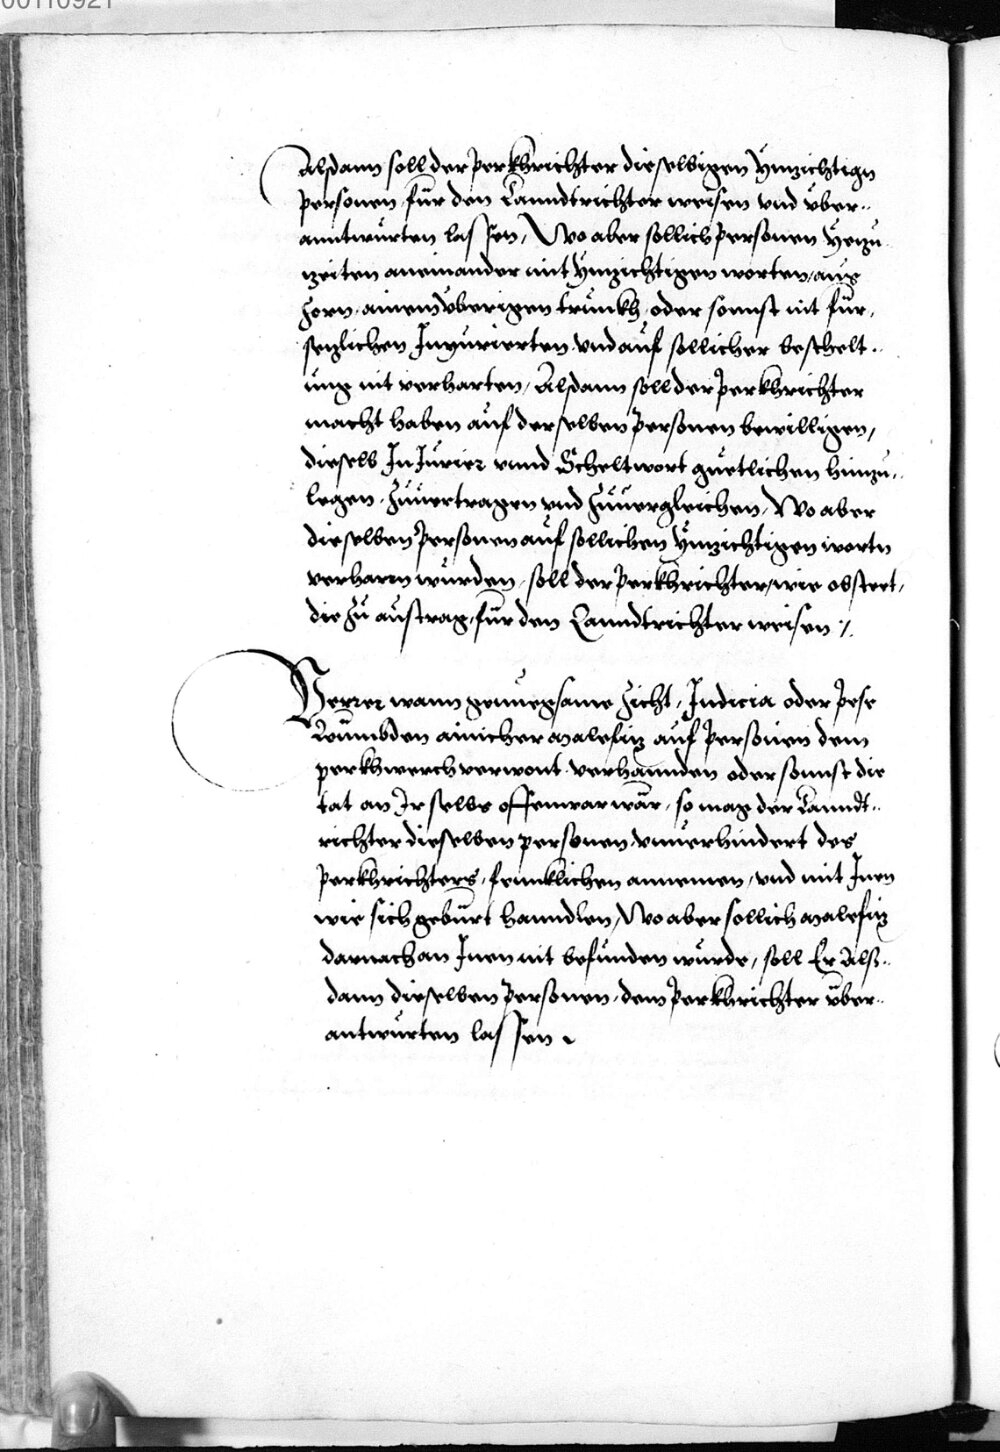 00110921
Alsdann soll der Perkhrichter dieselbigen ÿnnzichtign
personen für den Lanndtrichter weisen vnd vber-
anntwurten lassen, Wo aber sollich Personen Yezu
zeiten aneinander mit ÿnnzichtigen worten, aus
Zorn, ainem vberigen trunkh, oder sonnst nit für,
sezlichen Injurierten, vnd auf sollicher beschelt-
ung nit verharten, Alsdann soll der Perkhrichter
macht haben auf derselben Personen bewilligen,
dieselb InJurier vnnd Scheltwort guetlichen hinzu-
legen, Zuuertragen vnd Zuuergleichen, Wo aber
dieselben Personen auf sollichen ÿnnzichtigen wortn
verharrn wurden, soll der Perkhrichter, wie obsteet,
die Zu austrag, für den Lanndtrichter weisen /.
Verrer wann genuegsame Zicht, Indicia oder Pese
Leumbden ainicher malefiz auf Personen dem
perkhwerch verwont verhannden oder sonnst die
tat an Ir selbs offennwar wär, so mag der Lanndt-
richter dieselben personen, vnuerhindert des
Perkhrichters, fennklichen annemen, vnd mit Inen
wie sich gebürt hanndlen, Wo aber sollich malefiz
darnach an Inen nit befunden wurde, soll Er Als-
dann dieselben Personen, dem Perkhrichter vber-
antwurten lassen